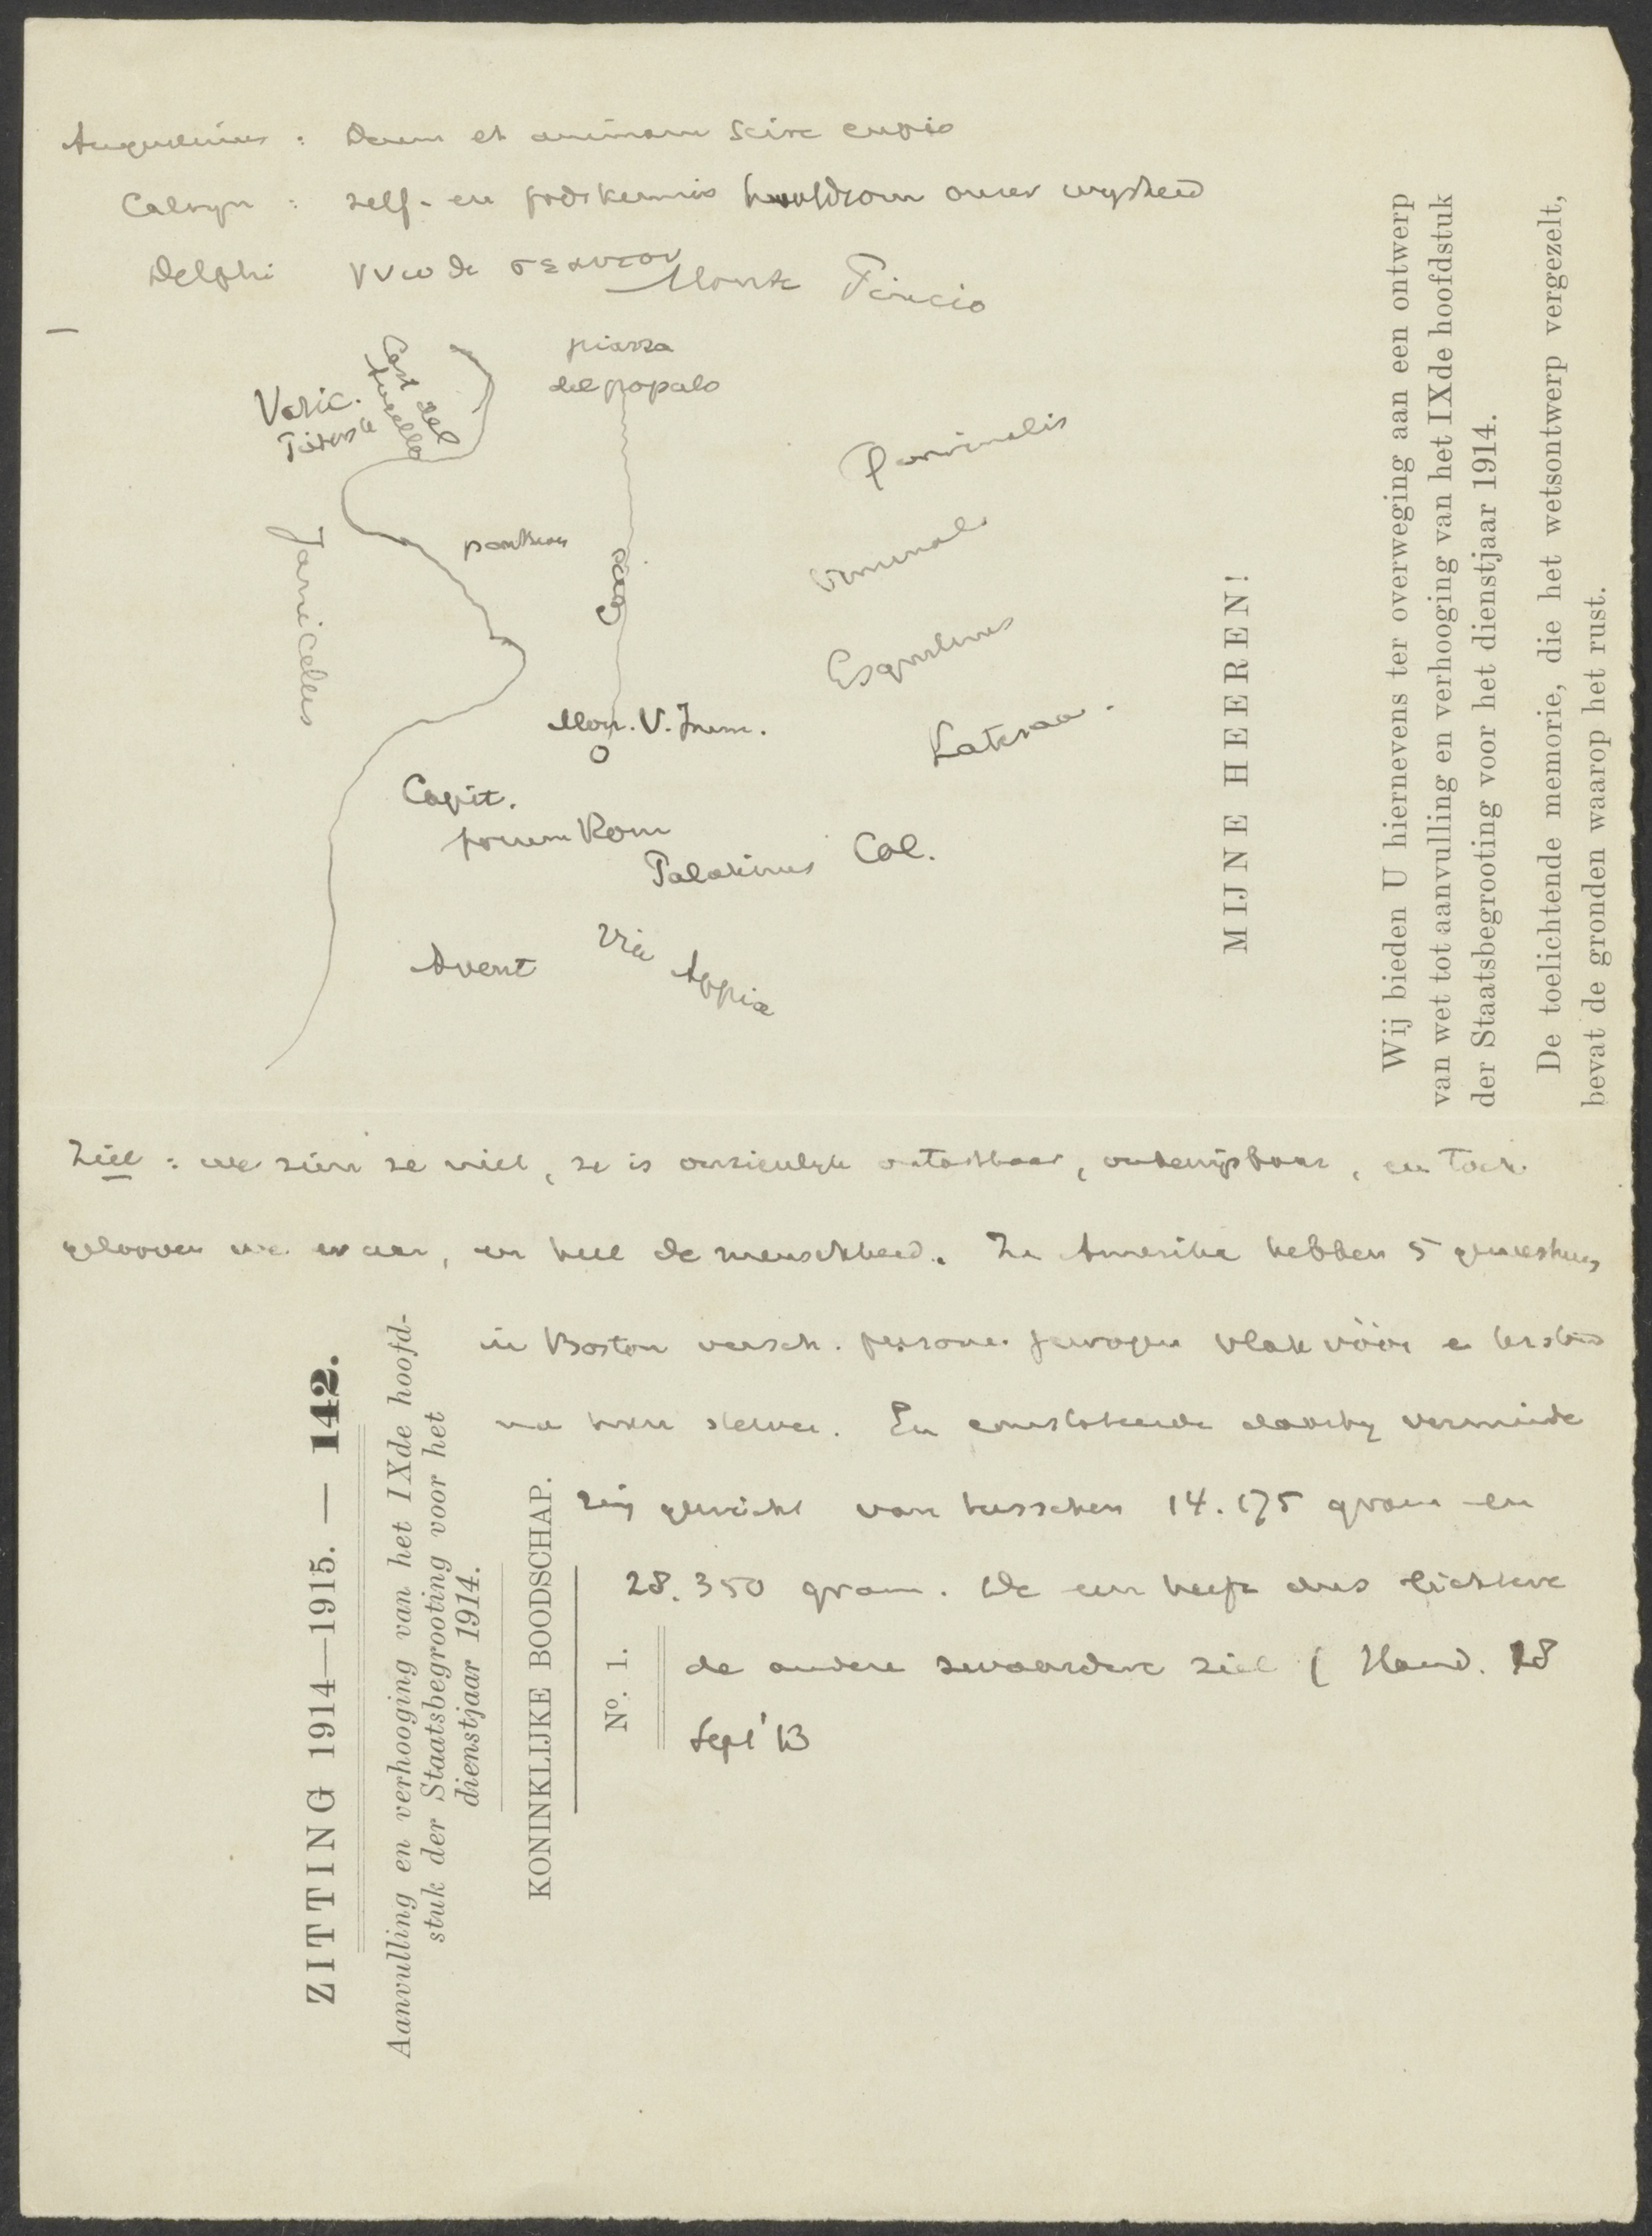 Augustinus : Deum et animam scire cupio
Calvyn : zelf- en godskennis hoofdsom onzer wysheid
Delphi γνωθι σεαυτον
Monte Pincio
piazza
del popolo
Cast del
Vatic.
Quirinalis
pantheon
Corso
Viminalis
Janiculus
Esquilinus
Mon. V. Imm.
Lateraan.
Capit.
forum Rom
Palatinus Coel.
Avent
Via Appia
MIJNE HEEREN!
Wij bieden U hiernevens ter overweging aan een ontwerp
van wet tot aanvulling en verhooging van het IXde hoofdstuk
der Staatsbegrooting voor het dienstjaar 1914.
De toelichtende memorie, die het wetsontwerp vergezelt,
bevat de gronden waarop het rust.
Ziel : we zien ze niet, ze is onzienlyk ontastbaar, onbewijsbaar, en toch
gelooven we er aan, en heel de menschheid. In Amerika hebben 5 geneeskund
in Boston versch. personen gewogen vlak vóór en terstond
na hun sterven. En constateerde daarby verminde
ring gewicht van tusschen 14.175 gram en
28.350 gram. De een heeft dus lichtere
de andere zwaardere ziel ( Hand. 18
Sept '13
ZITTING 1914—1915. — 142.
Aanvulling en verhooging van het IXde hoofd-
stuk der Staatsbegrooting voor het
dienstjaar 1914.
KONINKLIJKE BOODSCHAP.
No. 1.